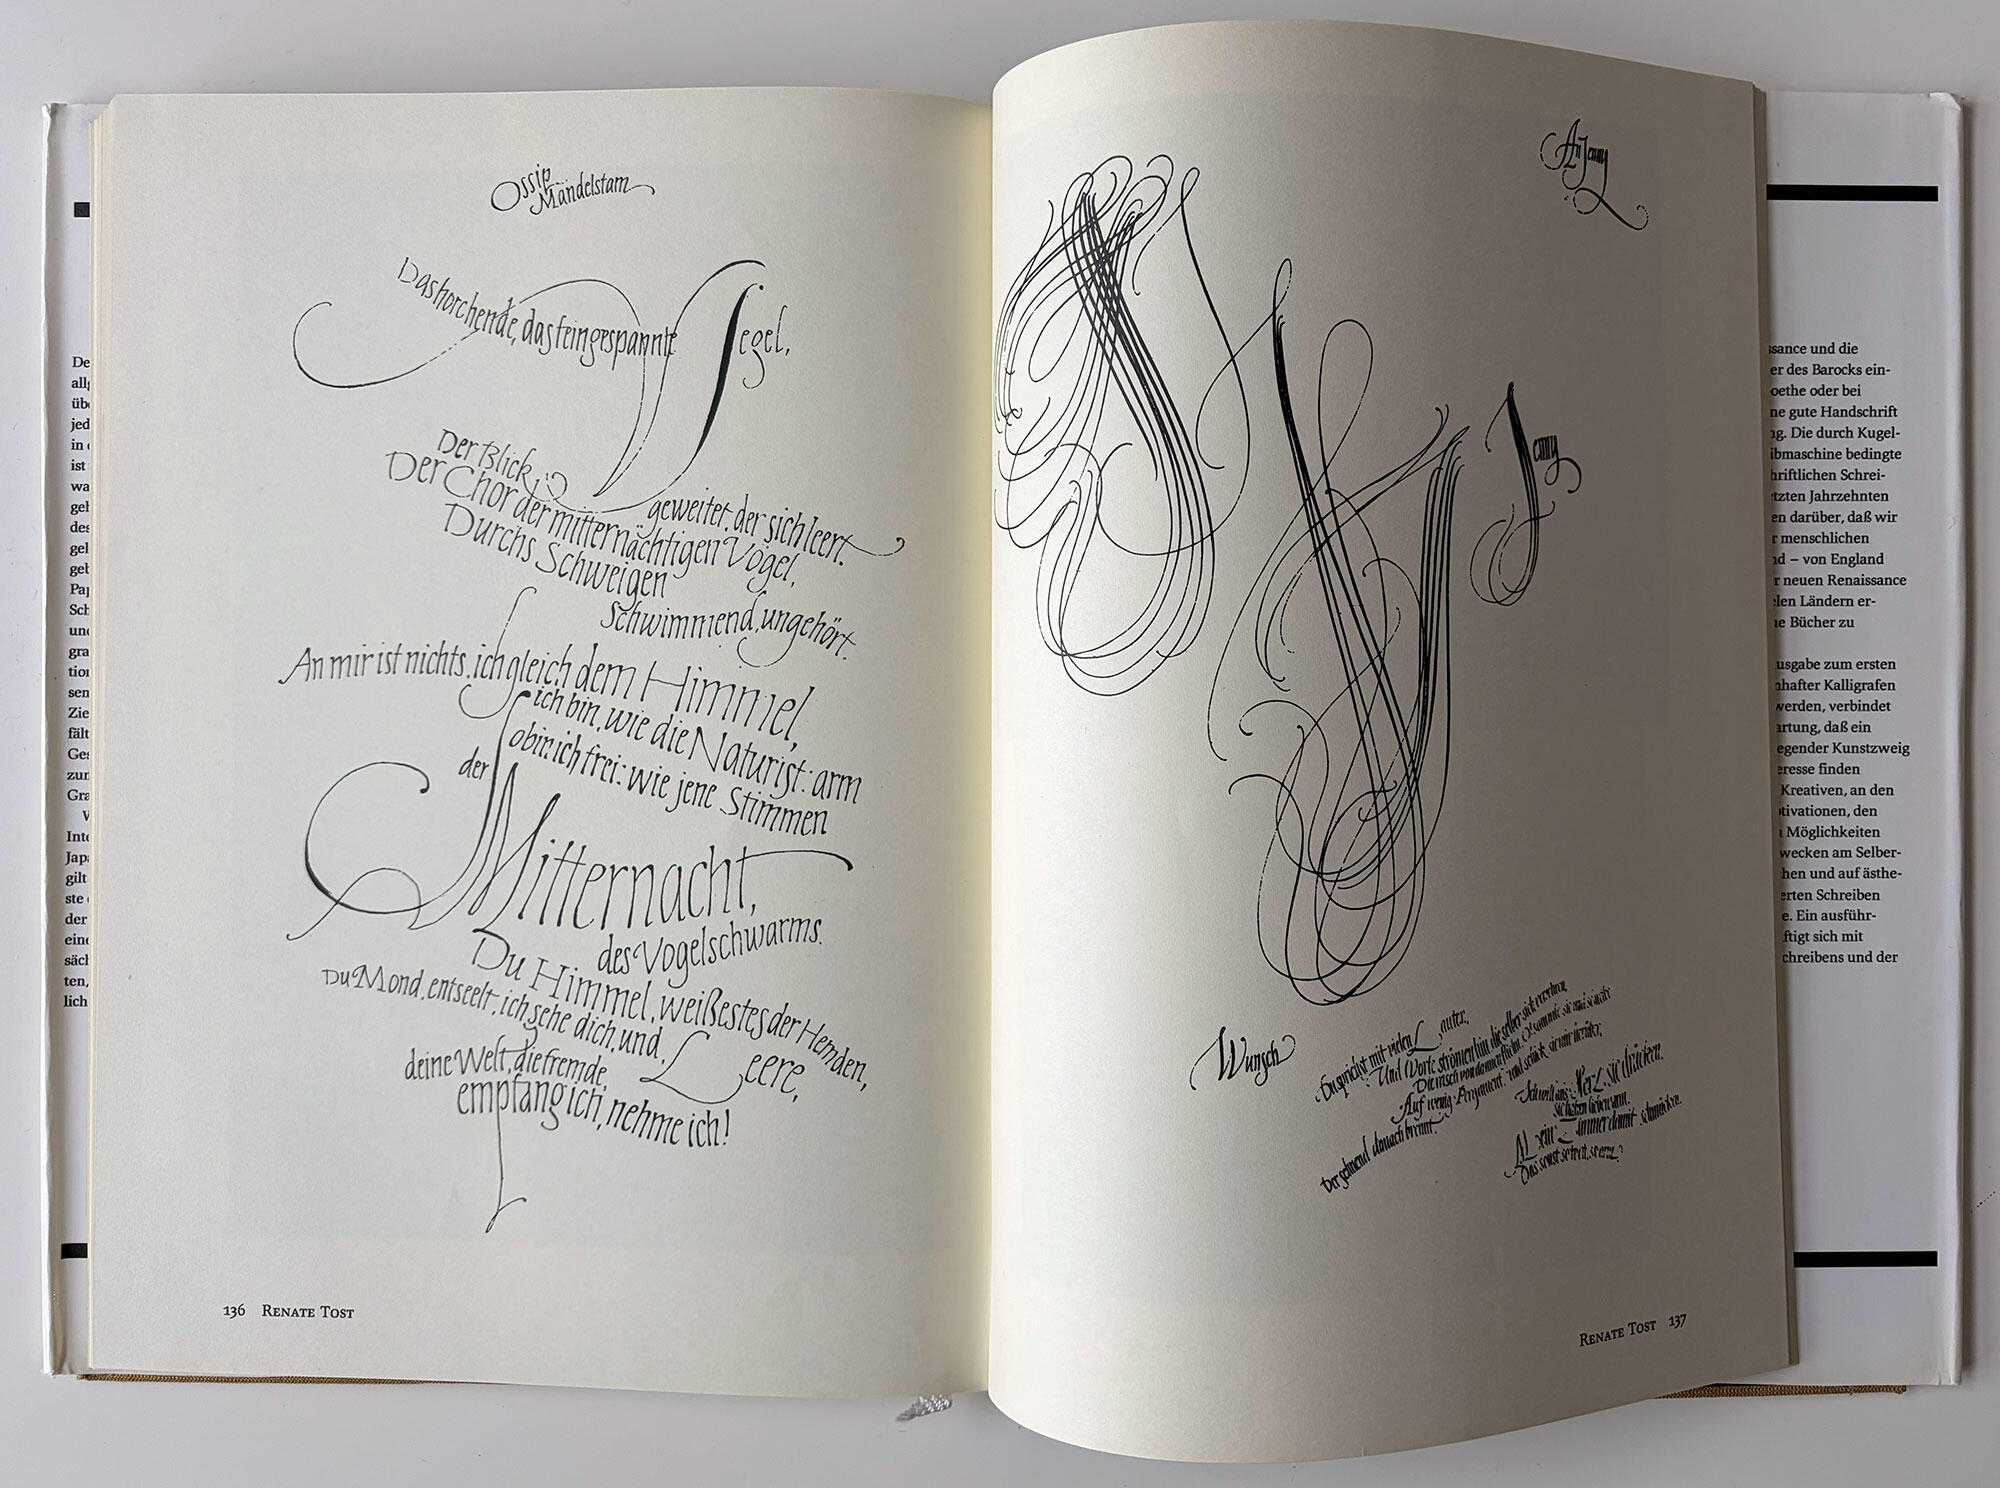 Ossip
Mandelstam
Das horchende, das feingespannte Segel,
Der Blick,
geweitet, der sich leert.
Der Chor der mitternächtigen Vögel,
Durchs Schweigen
schwimmend, ungehört.
An mir ist nichts, ich gleich dem Himmel,
ich bin, wie die Natur ist: arm
so bin ich frei: wie jene Stimmen
der
Mitternacht,
des Vogelschwarms.
Du Himmel, weißestes der Hemden,
Du Mond, entseelt, ich sehe dich, und, Leere,
deine Welt, die fremde,
empfang ich, nehme ich!
136 Renate Tost
An Jenny
Jenny
Wunsch
Du sprichst mit vielen Lauter,
Und Worte strömen hin die selber sich
Auf wenig Pergament, und
Der sehnend danach brennt.
Ich will ans Herz sie drücken.
Mein Zimmer damit schmücken.
Das sonst so
Renate Tost 137
De
allg
übe
jed
in
ist
wa
geh
des
gel
geb
Pap
Sch
und
gra
tion
sen
Zie
fält
Ges
zun
Gra
W
Inte
Japa
gilt
ste
der
eine
säch
ten,
lich
ssance und die
er des Barocks ein-
oethe oder bei
ne gute Handschrift
ng. Die durch Kugel-
ibmaschine bedingte
hriftlichen Schrei-
etzten Jahrzehnten
en darüber, daß wir
r menschlichen
nd – von England
r neuen Renaissance
elen Ländern er-
ue Bücher zu
usgabe zum ersten
nhafter Kalligrafen
werden, verbindet
artung, daß ein
egender Kunstzweig
eresse finden
Kreativen, an den
otivationen, den
n Möglichkeiten
wecken am Selber-
hen und auf ästhe-
erten Schreiben
e. Ein ausführ-
ftigt sich mit
chreibens und der